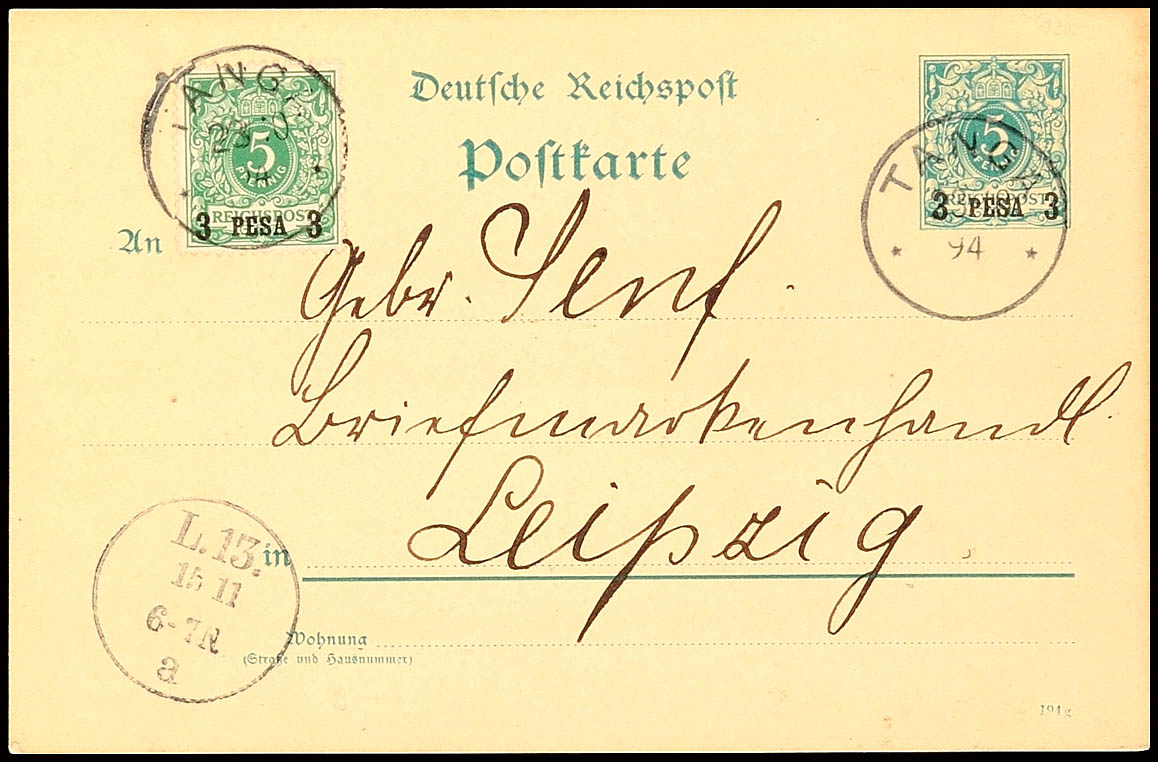 Deutsche Reichspost
Postkarte
TANGA
5
PFENNIG
REICHSPOST
3 PESA 3
TANGA
94
5
REICHSPOST
3 PESA 3
An
Gebr. Senf.
Briefmarkenhandl.
in Leipzig
L.13.
15 11
6-7N.
a
Wohnung
(Straße und Hausnummer)
194g